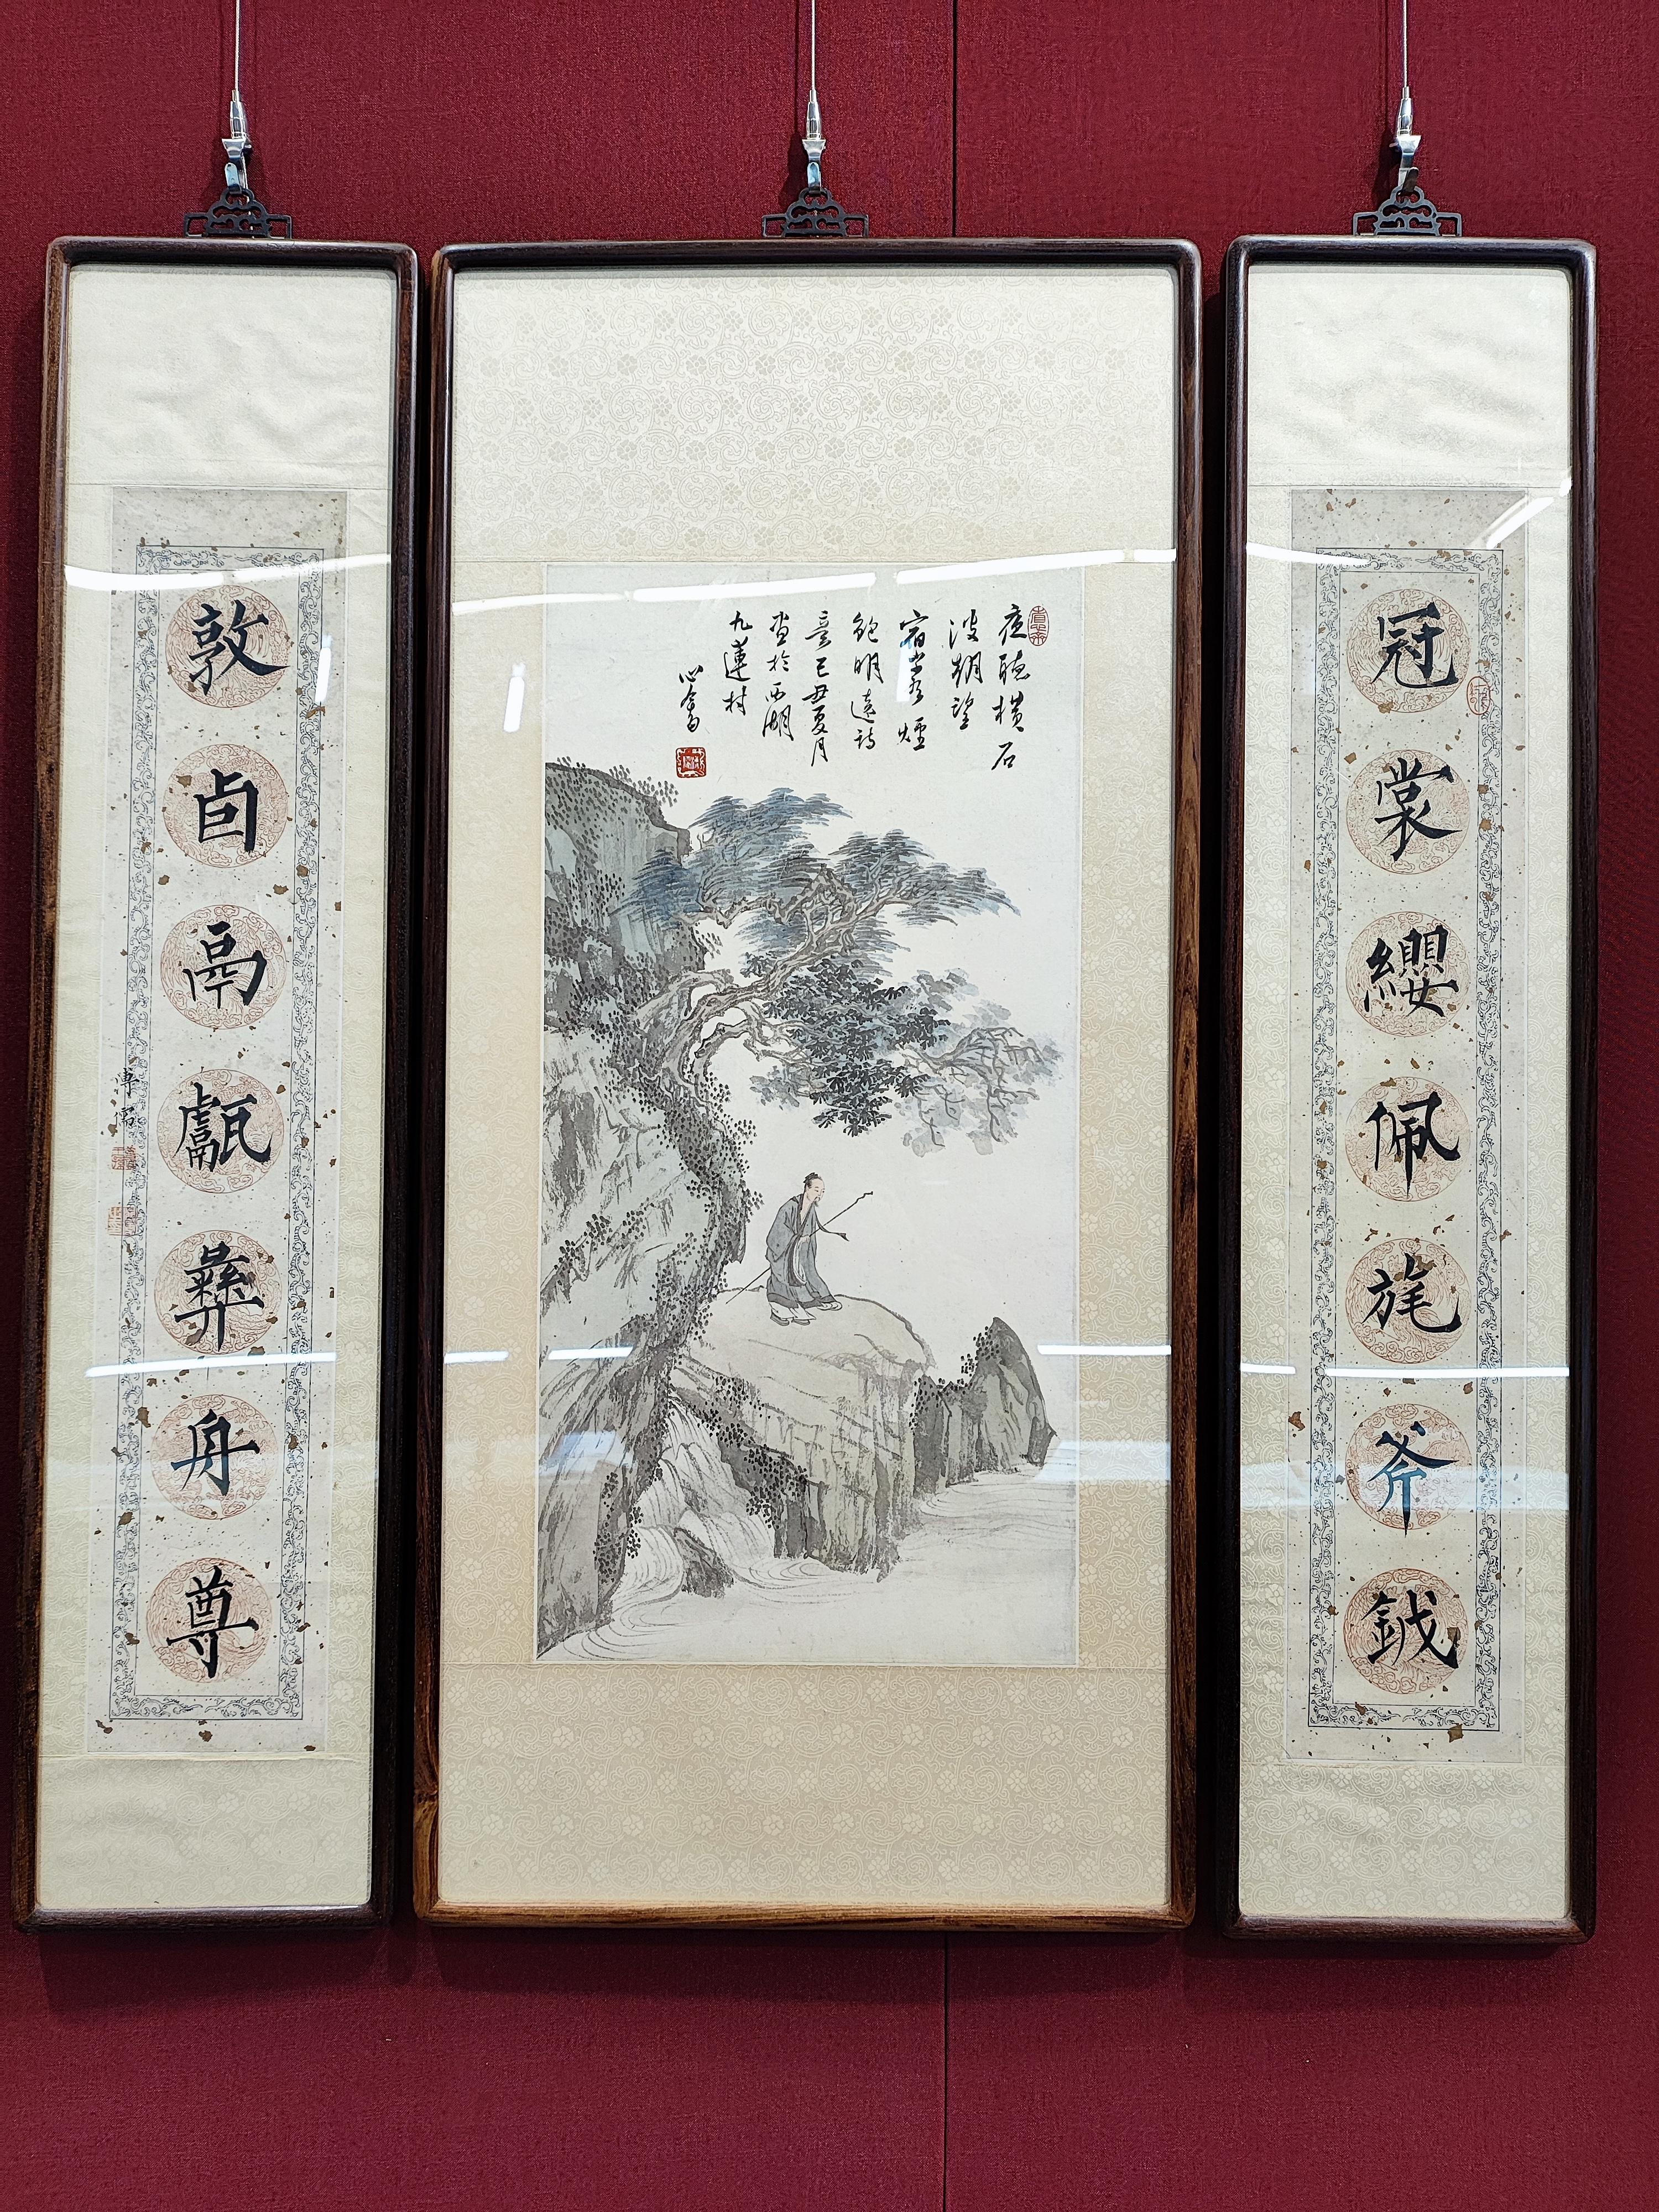 冠裳纓佩旄斧鉞
夜聽橫石
波朝望
宿巖煙
鮑明遠詩
意己丑夏月
畫於西湖
九蓮村
心畬
敦卣鬲甗彝舟尊
溥儒